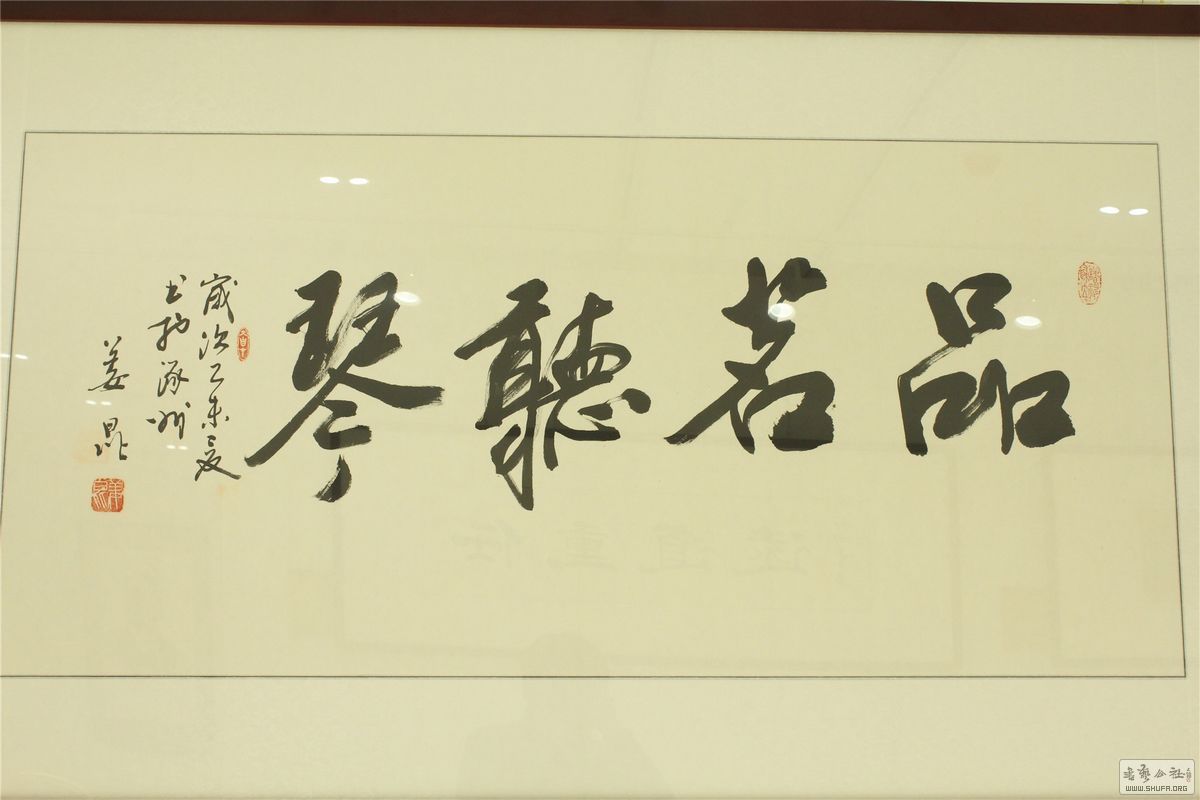 品茗聽琴
歲次乙未夏
書於涿州
姜鼎
書藝公社
WWW.SHUFA.ORG